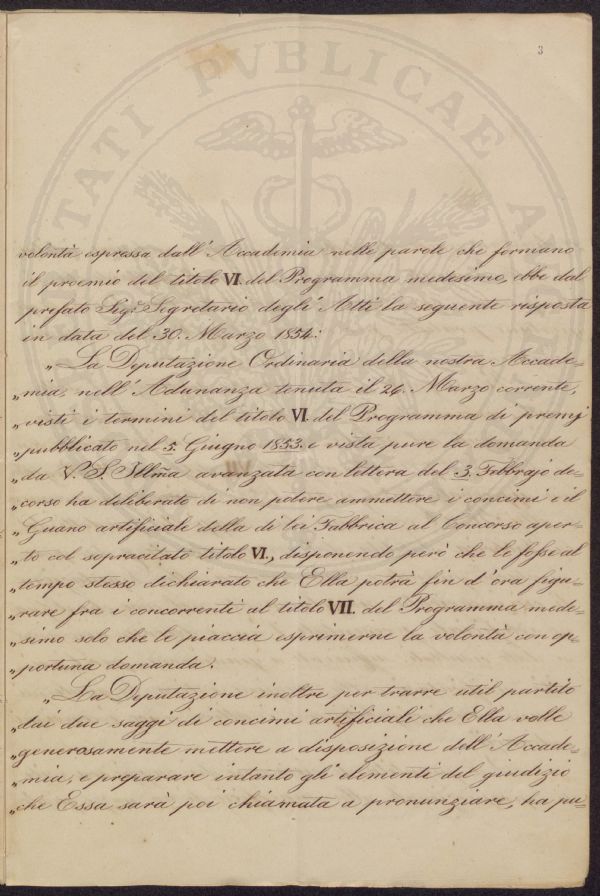 3
VTATI PVBLICAE
volontà espressa dall'Accademia nelle parole che formano
il proemio del titolo VI. del Programma medesimo, ebbe dal
prefato Sigr. Segretario degli Atti la seguente risposta
in data del 30. Marzo 1854:
„La Deputazione Ordinaria della nostra Accade=
„mia, nell'Adunanza tenuta il 26. Marzo corrente,
„visti i termini del titolo VI. del Programma di premj
„pubblicato nel 5. Giugno 1853. e vista pure la domanda
„da V. S. Illm̃a avanzata con lettera del 3. Febbrajo de=
„corso ha deliberato di non potere ammettere i concimi e il
„Guano artificiale della di lei Fabbrica al Concorso aper=
„to col sopracitato titolo VI., disponendo però che le fosse al
„tempo stesso dichiarato che Ella potrà fin d'ora figu=
„rare fra i concorrenti al titolo VII. del Programma mede=
„simo solo che le piaccia esprimerne la volontà con op=
„portuna domanda.
„La Deputazione inoltre per trarre util partito
„dai due saggi di concimi artificiali che Ella volle
„generosamente mettere a disposizione dell'Accade=
„mia, e preparare intanto gli elementi del giudizio
„che Essa sarà poi chiamata a pronunziare, ha pu=